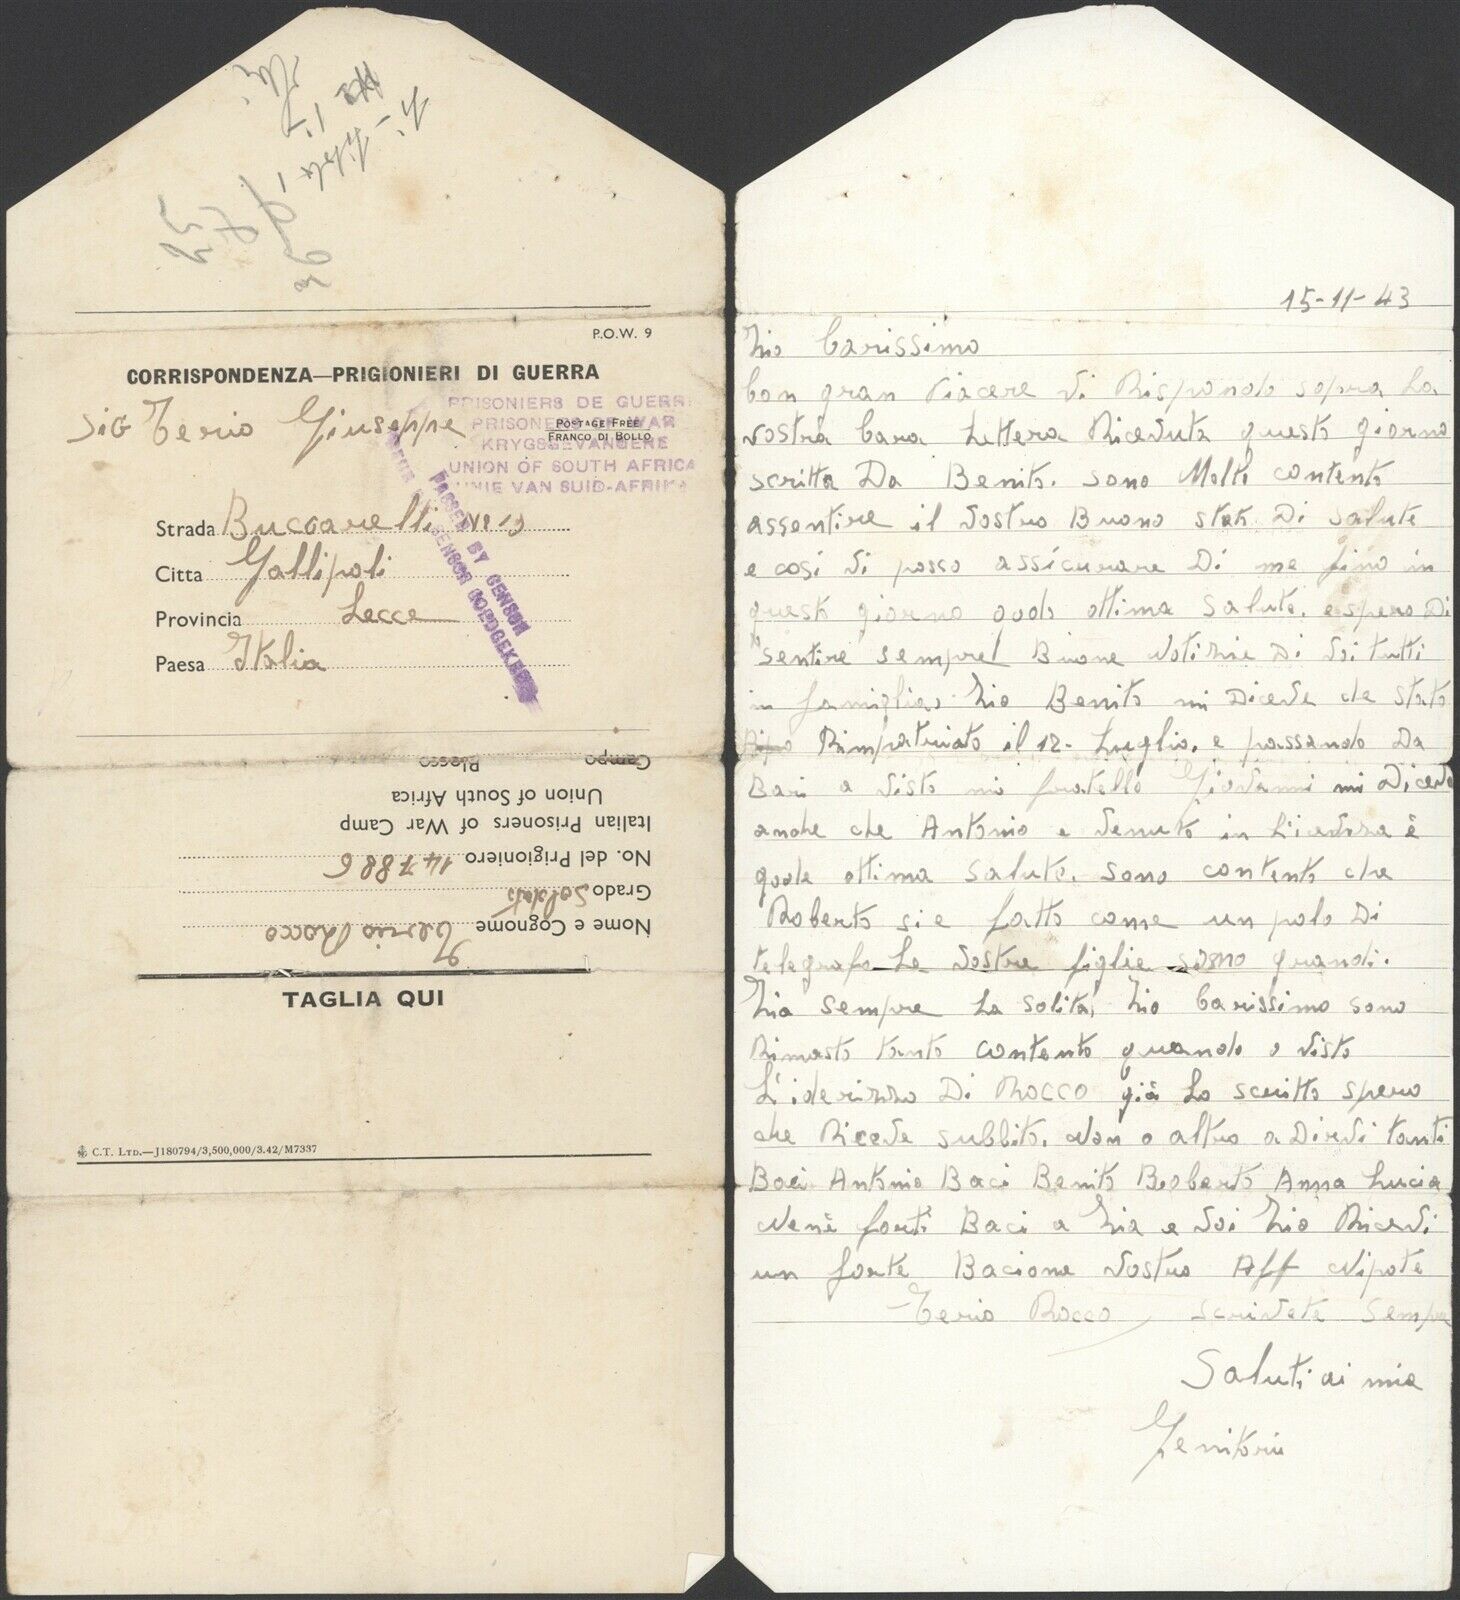 P.O.W. 9
CORRISPONDENZA—PRIGIONIERI DI GUERRA
SiG Terio Giuseppe
PRISONIERS DE GUERR
PRISONERS OF WAR
KRYGSGEVANGENE
UNION OF SOUTH AFRICA
UNIE VAN SUID-AFRIKA
POSTAGE FREE
FRANCO DI BOLLO
PASSED BY CENSOR
DEUR SENSOR GOEDGEKEUR
Strada Buccarelli No 19
Citta Gallipoli
Provincia Lecce
Paesa Italia
Campo Blocco
Union of South Africa
Italian Prisoners of War Camp
No. del Prigioniero 147886
Grado Soldato
Nome e Cognome Terio Rocco
TAGLIA QUI
C.T. LTD.—J180794/3,500,000/3.42/M7337
15-11-43
Zio Carissimo
Con gran Piacere Vi Rispondo sopra La
vostra Cara Lettera Riceduta questo giorno
scritta Da Benito. sono Molto contento
assentire il Vostro Buono stato Di Salute
e cosi Vi posso assicurare Di me fino in
questo giorno godo ottima Salute. e spero Di
sentire sempre Buone Notizie Di Voi tutti
in famiglia, Zio Benito mi Diceva che Stato
Rimpatriato il 12- Luglio. e passando Da
Bari a Visto mi fratello Giovanni mi Diceva
anche che Antonio e Venuto in Licenza è
gode ottima Salute. Sono contento che
Roberto si e fatto come un palo Di
telegrafo Le Vostre figlie sono grandi.
Zia sempre La solita, Zio Carissimo sono
Rimasto tanto contento quando o Visto
L'iderizzo Di ROCCO già Lo scritto spero
che Riceve subbito. Non o altro a Dirvi tanti
Baci Antonio Baci Benito Roberto Anna Lucia
Nenè forti Baci a Zia e Voi Zio Ricevi
un forte Bacione Vostro Aff Nipote
Terio Rocco scrivete sempre
Saluti ai mie
Genitorii